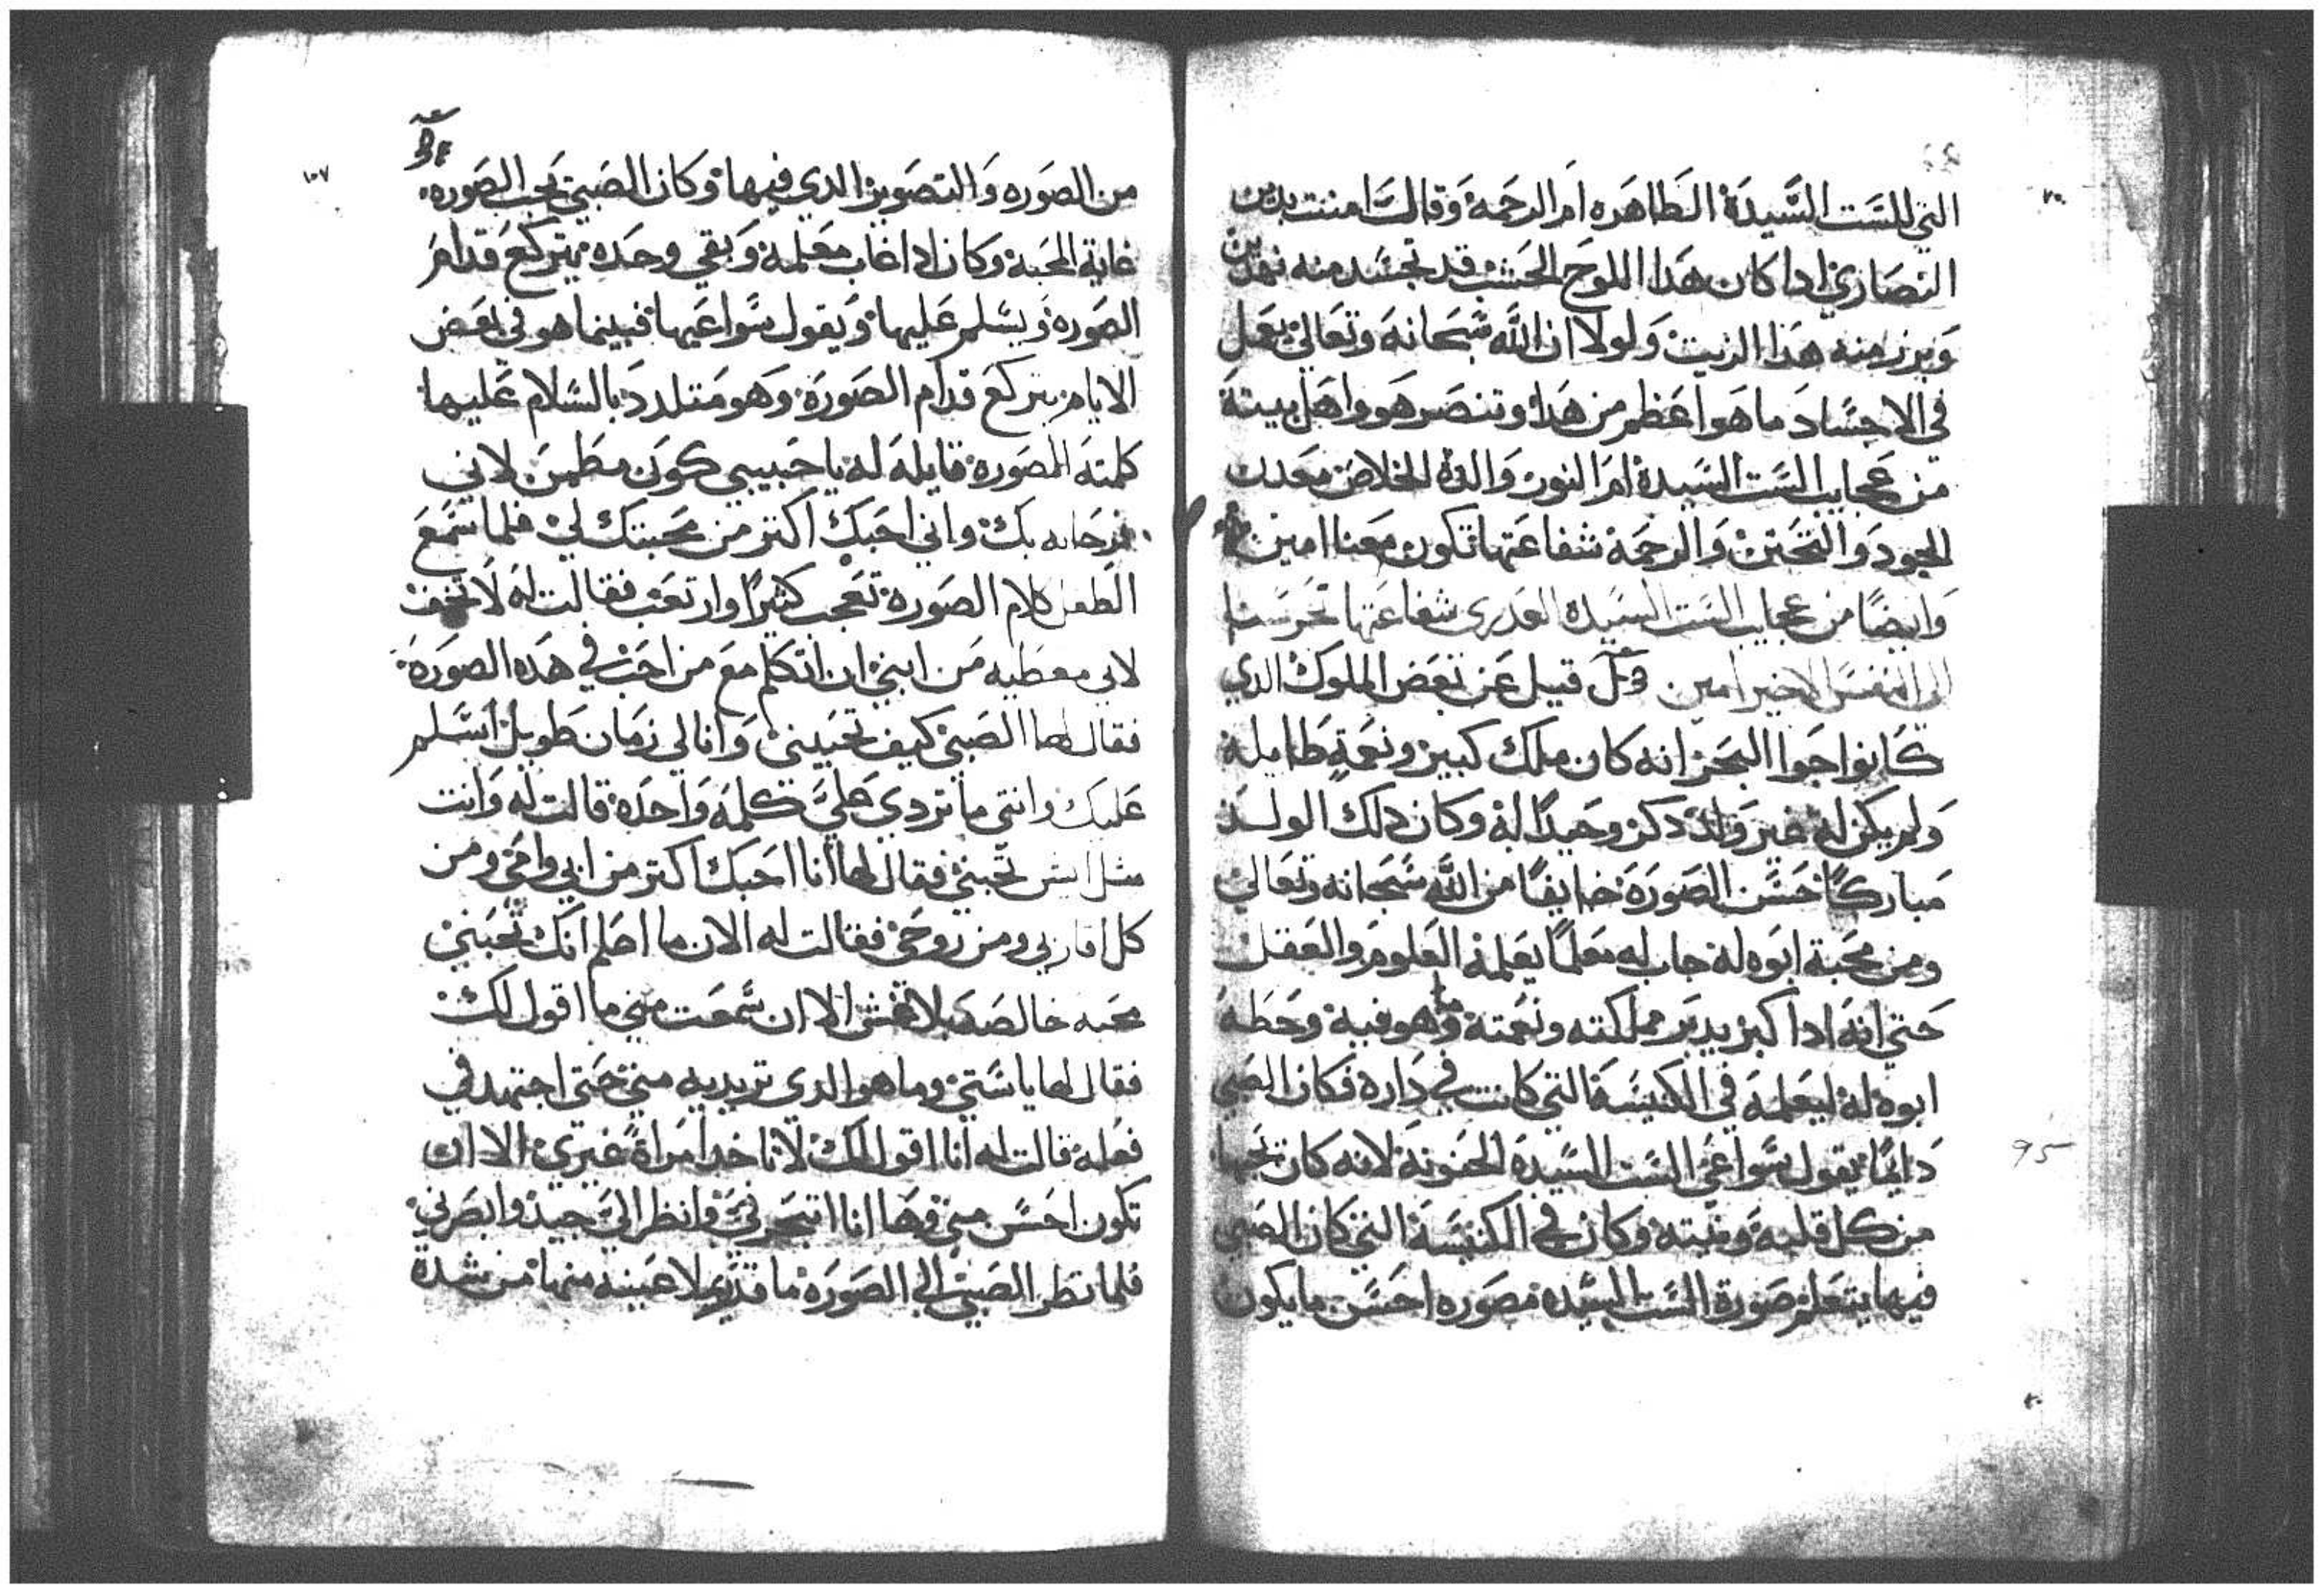 التي للست السيدة الطاهره ام الرحمة وقالت امنت بدين
النصاري ادا كان هدا اللوح الخشب قد تجسد منه نهدين
وبرز منه هدا الزيت ولولا ان الله سبحانه وتعالي يعمل
في الاجساد ما هو اعظم من هدا وتنصر هو واهل بيته
من عجايب الست السيدة ام النور والدة الخلاص معدن
الجود والتحنن والرحمة شفاعتها تكون معنا امين
وايضا من عجايب الست السيدة العدري شفاعتها تحرسنا
الي النفس الاخير امين قيل عن بعض الملوك الدي
كانوا جوا البحر انه كان ملك كبير ونعمة طايلة
ولم يكن له غير ولد دكر وحيدا له وكان دلك الولد
مباركا حسن الصورة خايفا من الله سبحانه وتعالي
ومن محبة ابوه له جاب له معلما يعلمه العلوم والعقل
حتي انه ادا كبر يدبر مملكته ونعمته وما هو فيه وحطه
ابوه له ليعلمه في الكنيسة التي كانت في داره فكان الصبي
دايما يقول سوا عي الست السيدة الحنونة لانه كان يحبها
من كل قلبه ونيته وكان في الكنيسة التي كان الصبي
فيها يتعلم صورة الست السيده مصوره احسن ما يكون
95
١٠٧
من الصوره والتصوير الدي فيها وكان الصبي يحب الصوره
غاية المحبة وكان ادا غاب معلمه وبقي وحده يتركع قدام
الصوره ويسلم عليها ويقول سوا عيها فبينما هو في بعض
الايام يتركع قدام الصورة وهو متلدد بالسلام عليها
كلمته الصورة قايلة له يا حبيبي كون مطمن لاني
فرحانه بك واني احبك اكتر من محبتك لي فلما سمع
الطفل كلام الصورة تعجب كثيرا وارتعب فقالت له لا تخف
لاني معطيه من ابني ان اتكلم مع من احب في هده الصورة
فقال لها الصبي كيف تحبيني وانا لي زمان طويل اسلم
عليك وانتي ما تردي علي كلمة واحدة قالت له وانت
مثل ايش تحبني فقال لها انا احبك اكتر من ابي وامي ومن
كل اقاربي ومن روحي فقالت له الان ما اعلم انك تحبني
محبه خالصه بلا غش الا ان سمعت مني ما اقول لك
فقال لها يا ستي وما هو الدي تريديه مني حتي اجتهد في
فعله قالت له انا اقول لك لا تاخد امراة غيري الا ان
تكون احسن مني وها انا اتبحر في وانظر الي جيد وابصرني
فلما نظر الصبي الي الصورة ما قدر يملا عينيه منها من شدة